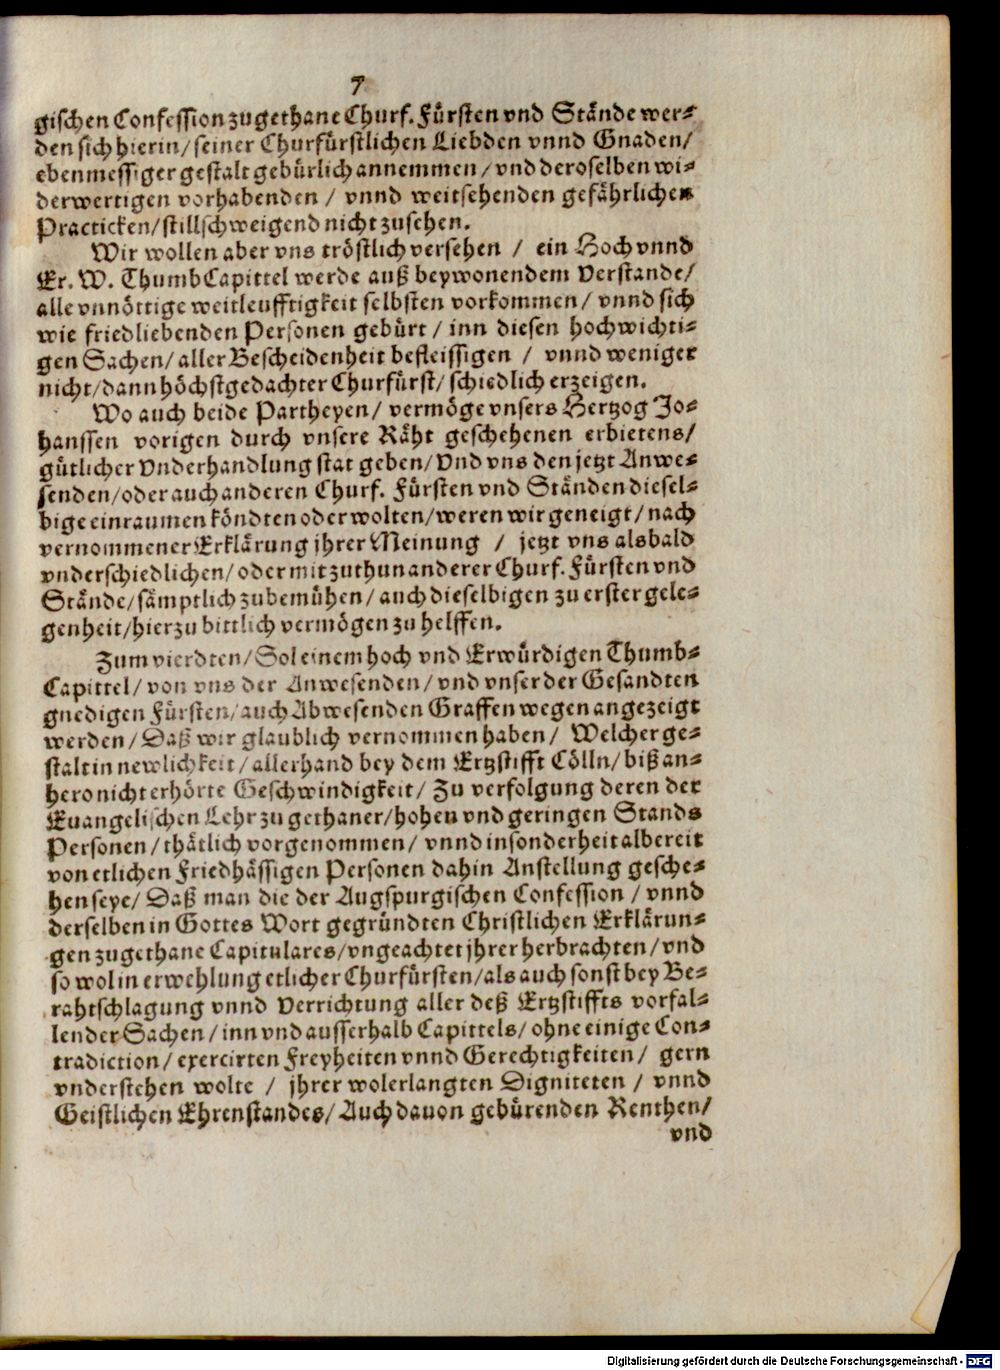 7
gischen Confession zugethane Churf. Fürsten vnd Stände wer-
den sich hierin/ seiner Churfürstlichen Liebden vnnd Gnaden/
ebenmessiger gestalt gebürlich annemmen/ vnd deroselben wi-
derwertigen vorhabenden / vnnd weitsehenden gefährlichen
Practicken/ stillschweigend nicht zusehen.
Wir wollen aber vns tröstlich versehen / ein Hoch vnnd
Er. W. ThumbCapittel werde auß beywonendem Verstande/
alle vnnöttige weitleufftigkeit selbsten vorkommen/ vnnd sich
wie friedliebenden Personen gebürt / inn diesen hochwichti-
gen Sachen/ aller Bescheidenheit befleissigen / vnnd weniger
nicht/ dann höchstgedachter Churfürst/ schiedlich erzeigen.
Wo auch beide Partheyen/ vermöge vnsers Hertzog Jo-
hanssen vorigen durch vnsere Räht geschehenen erbietens/
gütlicher Vnderhandlung stat geben/ Vnd vns den jetzt Anwe-
senden/ oder auch anderen Churf. Fürsten vnd Ständen diesel-
bige einraumen köndten oder wolten/ weren wir geneigt/ nach
vernommener Erklärung jhrer Meinung / jetzt vns alsbald
vnderschiedlichen/ oder mit zuthun anderer Churf. Fürsten vnd
Stände/ sämptlich zubemühen/ auch dieselbigen zu erster gele-
genheit/ hierzu bittlich vermögen zu helffen.
Zum vierdten/ Sol einem hoch vnd Erwürdigen Thumb-
Capittel/ von vns der Anwesenden/ vnd vnser der Gesandten
gnedigen Fürsten/ auch Abwesenden Graffen wegen angezeigt
werden/ Daß wir glaublich vernommen haben/ Welcher ge-
stalt in newlichkeit/ allerhand bey dem Ertzstifft Cölln/ biß an-
hero nicht erhörte Geschwindigkeit/ Zu verfolgung deren der
Euangelischen Lehr zu gethaner/ hohen vnd geringen Stands
Personen/ thätlich vorgenommen/ vnnd insonderheit albereit
von etlichen Friedhässigen Personen dahin Anstellung gesche-
hen seye/ Daß man die der Augspurgischen Confession / vnnd
derselben in Gottes Wort gegründten Christlichen Erklärun-
gen zugethane Capitulares/ vngeachtet jhrer herbrachten/ vnd
so wol in erwehlung etlicher Churfürsten/ als auch sonst bey Be-
rahtschlagung vnnd Verrichtung aller deß Ertzstiffts vorfal-
lender Sachen/ inn vnd ausserhalb Capittels/ ohne einige Con-
tradiction/ exercirten Freyheiten vnnd Gerechtigkeiten/ gern
vnderstehen wolte / jhrer wolerlangten Digniteten / vnnd
Geistlichen Ehrenstandes/ Auch dauon gebürenden Renthen/
vnd
Digitalisierung gefördert durch die Deutsche Forschungsgemeinschaft - DFG